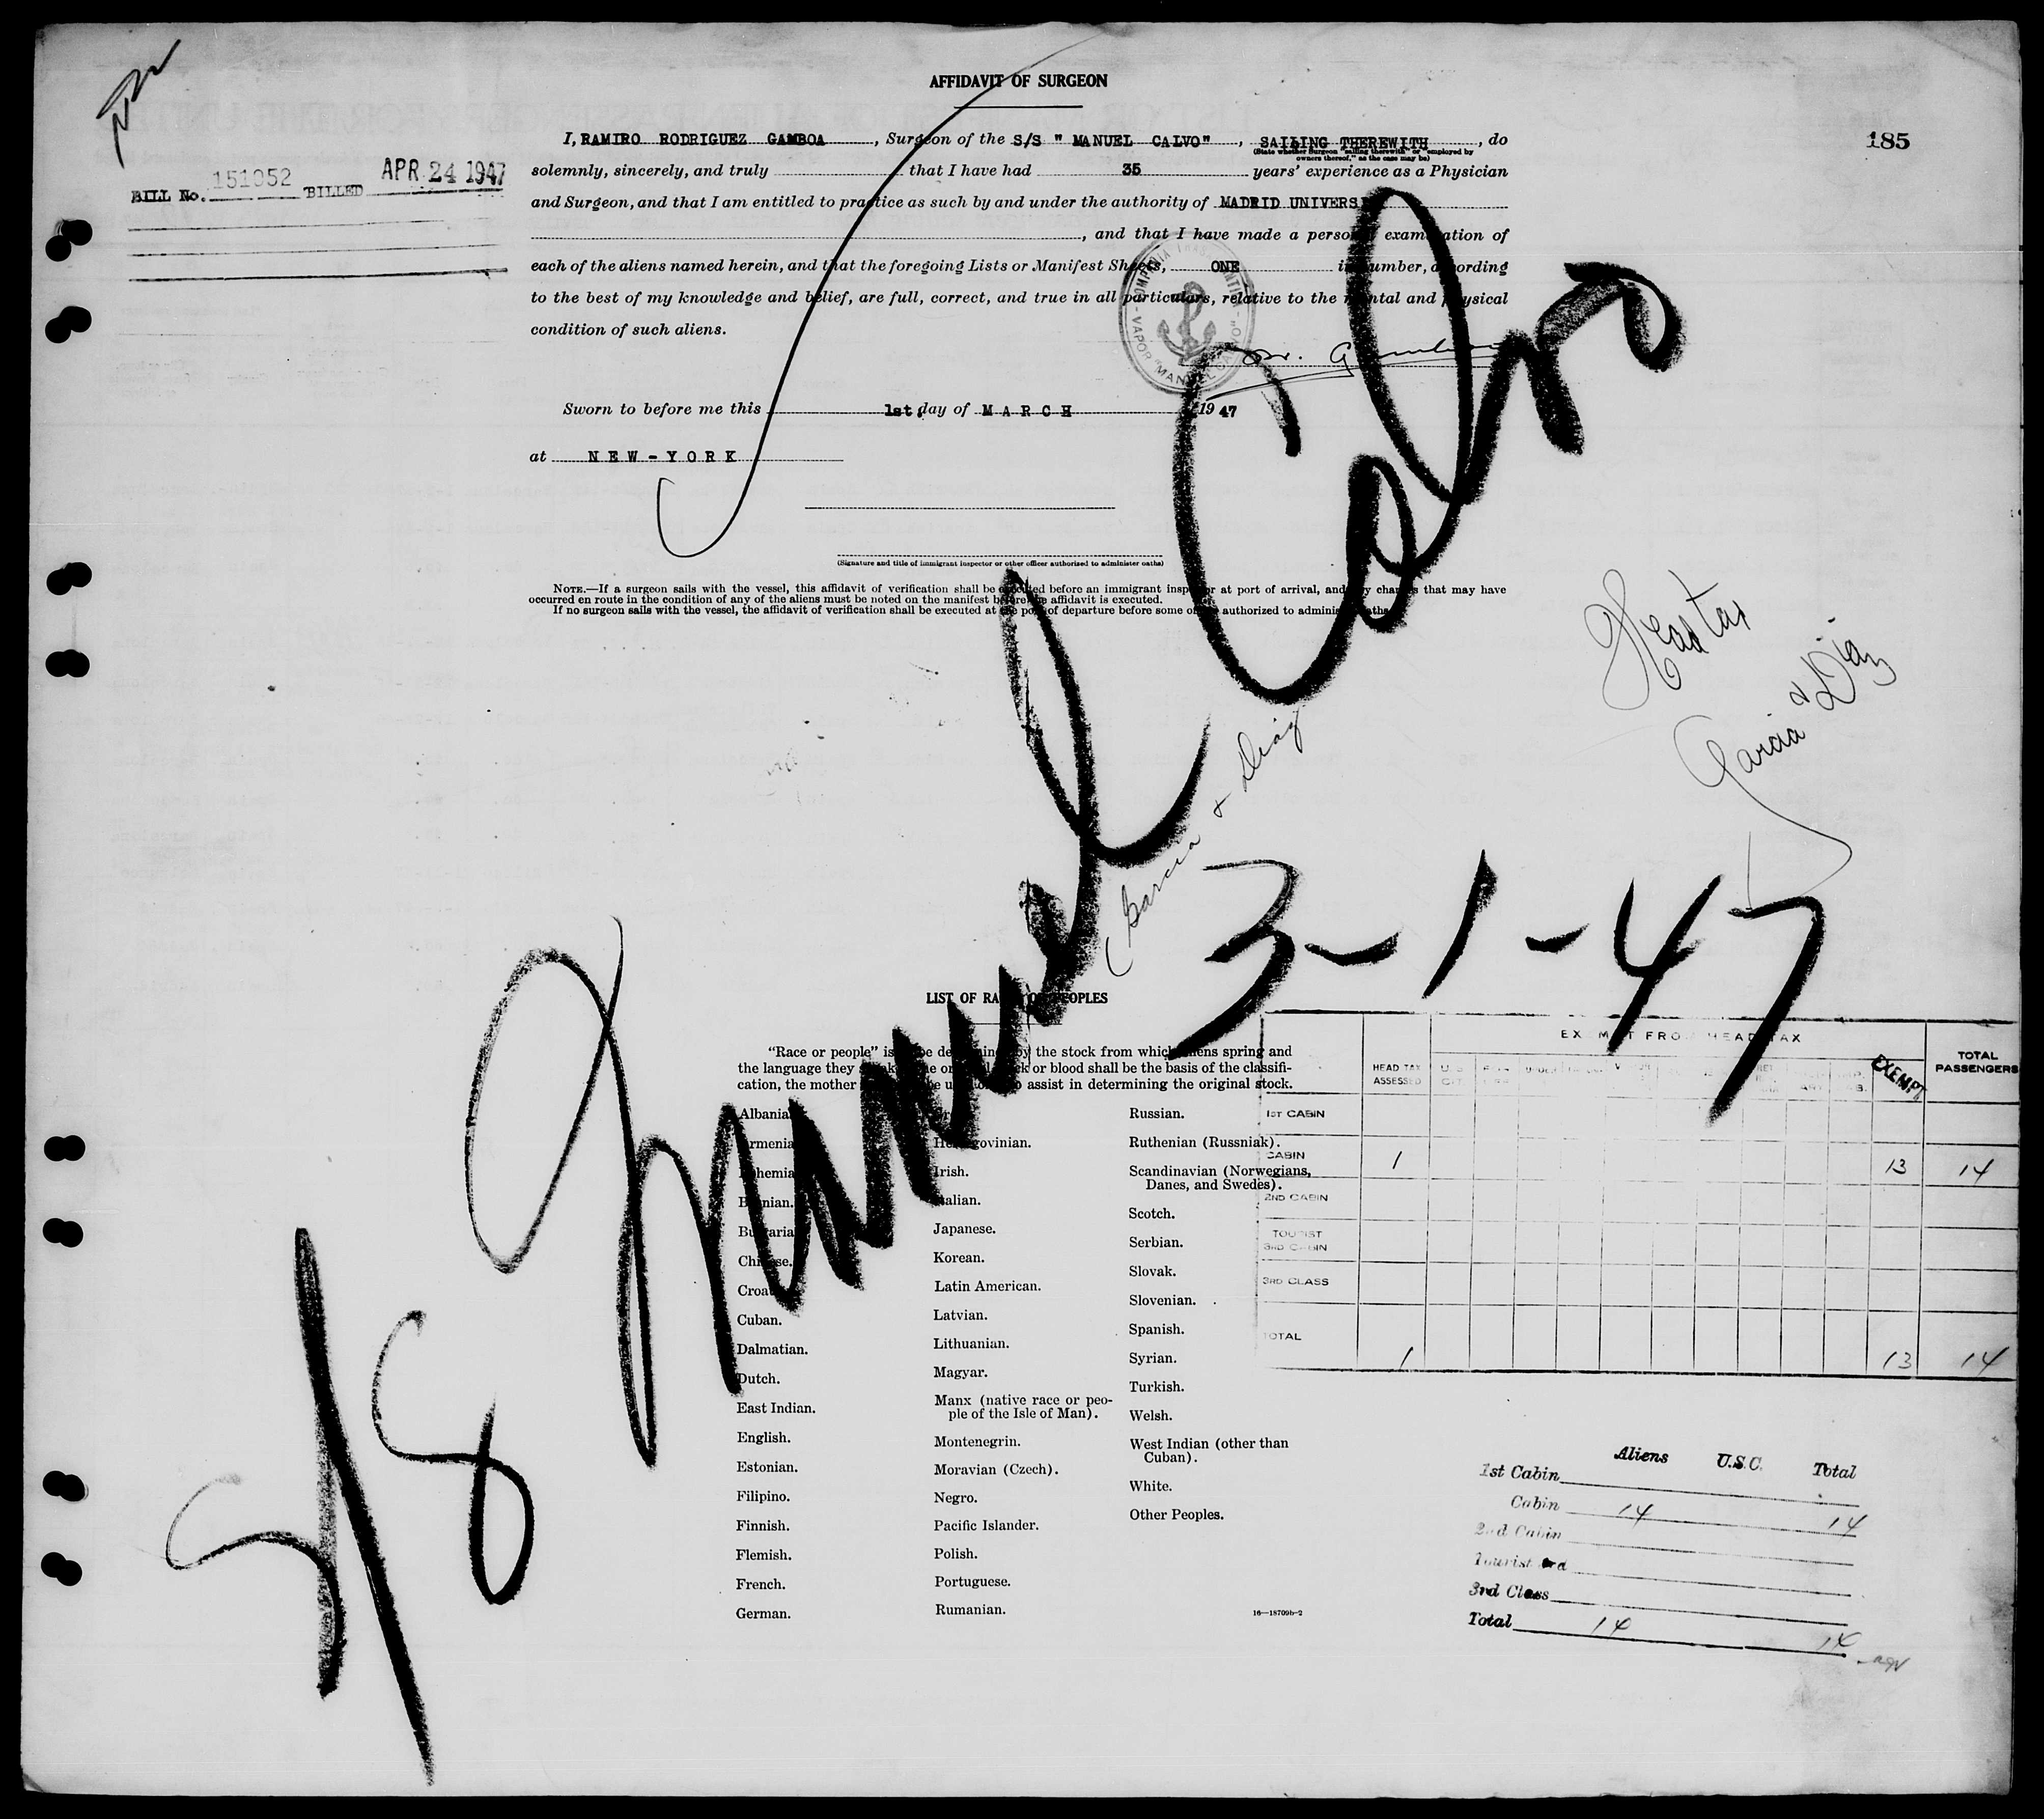 AFFIDAVIT OF SURGEON
185
I, RAMIRO RODRIGUEZ GAMBOA, Surgeon of the S/S " MANUEL CALVO", SAILING THEREWITH, do
(State whether Surgeon "sailing therewith" or "employed by
owners thereof," as the case may be)
BILL No. 151052 BILLED APR 24 1947
solemnly, sincerely, and truly that I have had 35 years' experience as a Physician
and Surgeon, and that I am entitled to practice as such by and under the authority of MADRID
, and that I have made a personal examination of
each of the aliens named herein, and that the foregoing Lists or Manifest Sheets, ONE in number, according
to the best of my knowledge and belief, are full, correct, and true in all particulars, relative to the mental and physical
condition of such aliens.
VAPOR "MANUEL CALVO"
Sworn to before me this 1st day of MARCH 1947
at NEW-YORK
(Signature and title of immigrant inspector or other officer authorized to administer oaths)
NOTE.—If a surgeon sails with the vessel, this affidavit of verification shall be executed before an immigrant inspector at port of arrival, and any changes that may have
occurred en route in the condition of any of the aliens must be noted on the manifest before the affidavit is executed.
If no surgeon sails with the vessel, the affidavit of verification shall be executed at the port of departure before some officer authorized to administer oaths.
S/S Manuel Calvo
(Garcia & Diaz
Head tax
Garcia & Diaz
3-1-47
LIST OF RACES OR PEOPLES
"Race or people" is to be determined by the stock from which aliens spring and
the language they speak. The original stock or blood shall be the basis of the classifi-
cation, the mother tongue used to assist in determining the original stock.
Albanian.
Armenian.
Bohemian
Bosnian.
Bulgarian.
Chinese.
Croatian.
Cuban.
Dalmatian.
Dutch.
East Indian.
English.
Estonian.
Filipino.
Finnish.
Flemish.
French.
German.
Herzegovinian.
Irish.
Italian.
Japanese.
Korean.
Latin American.
Latvian.
Lithuanian.
Magyar.
Manx (native race or peo-
ple of the Isle of Man).
Montenegrin.
Moravian (Czech).
Negro.
Pacific Islander.
Polish.
Portuguese.
Rumanian.
Russian.
Ruthenian (Russniak).
Scandinavian (Norwegians,
Danes, and Swedes).
Scotch.
Serbian.
Slovak.
Slovenian.
Spanish.
Syrian.
Turkish.
Welsh.
West Indian (other than
Cuban).
White.
Other Peoples.
16—18709b-2
EXEMPT FROM HEAD TAX
HEAD TAX
ASSESSED
EXEMPT
TOTAL
PASSENGERS
1ST CABIN
CABIN 1 13 14
2ND CABIN
TOURIST
3RD CABIN
3RD CLASS
TOTAL 1 13 14
Aliens U.S.C. Total
1st Cabin
Cabin 14 14
2nd Cabin
Tourist 3rd
3rd Class
Total 14 14